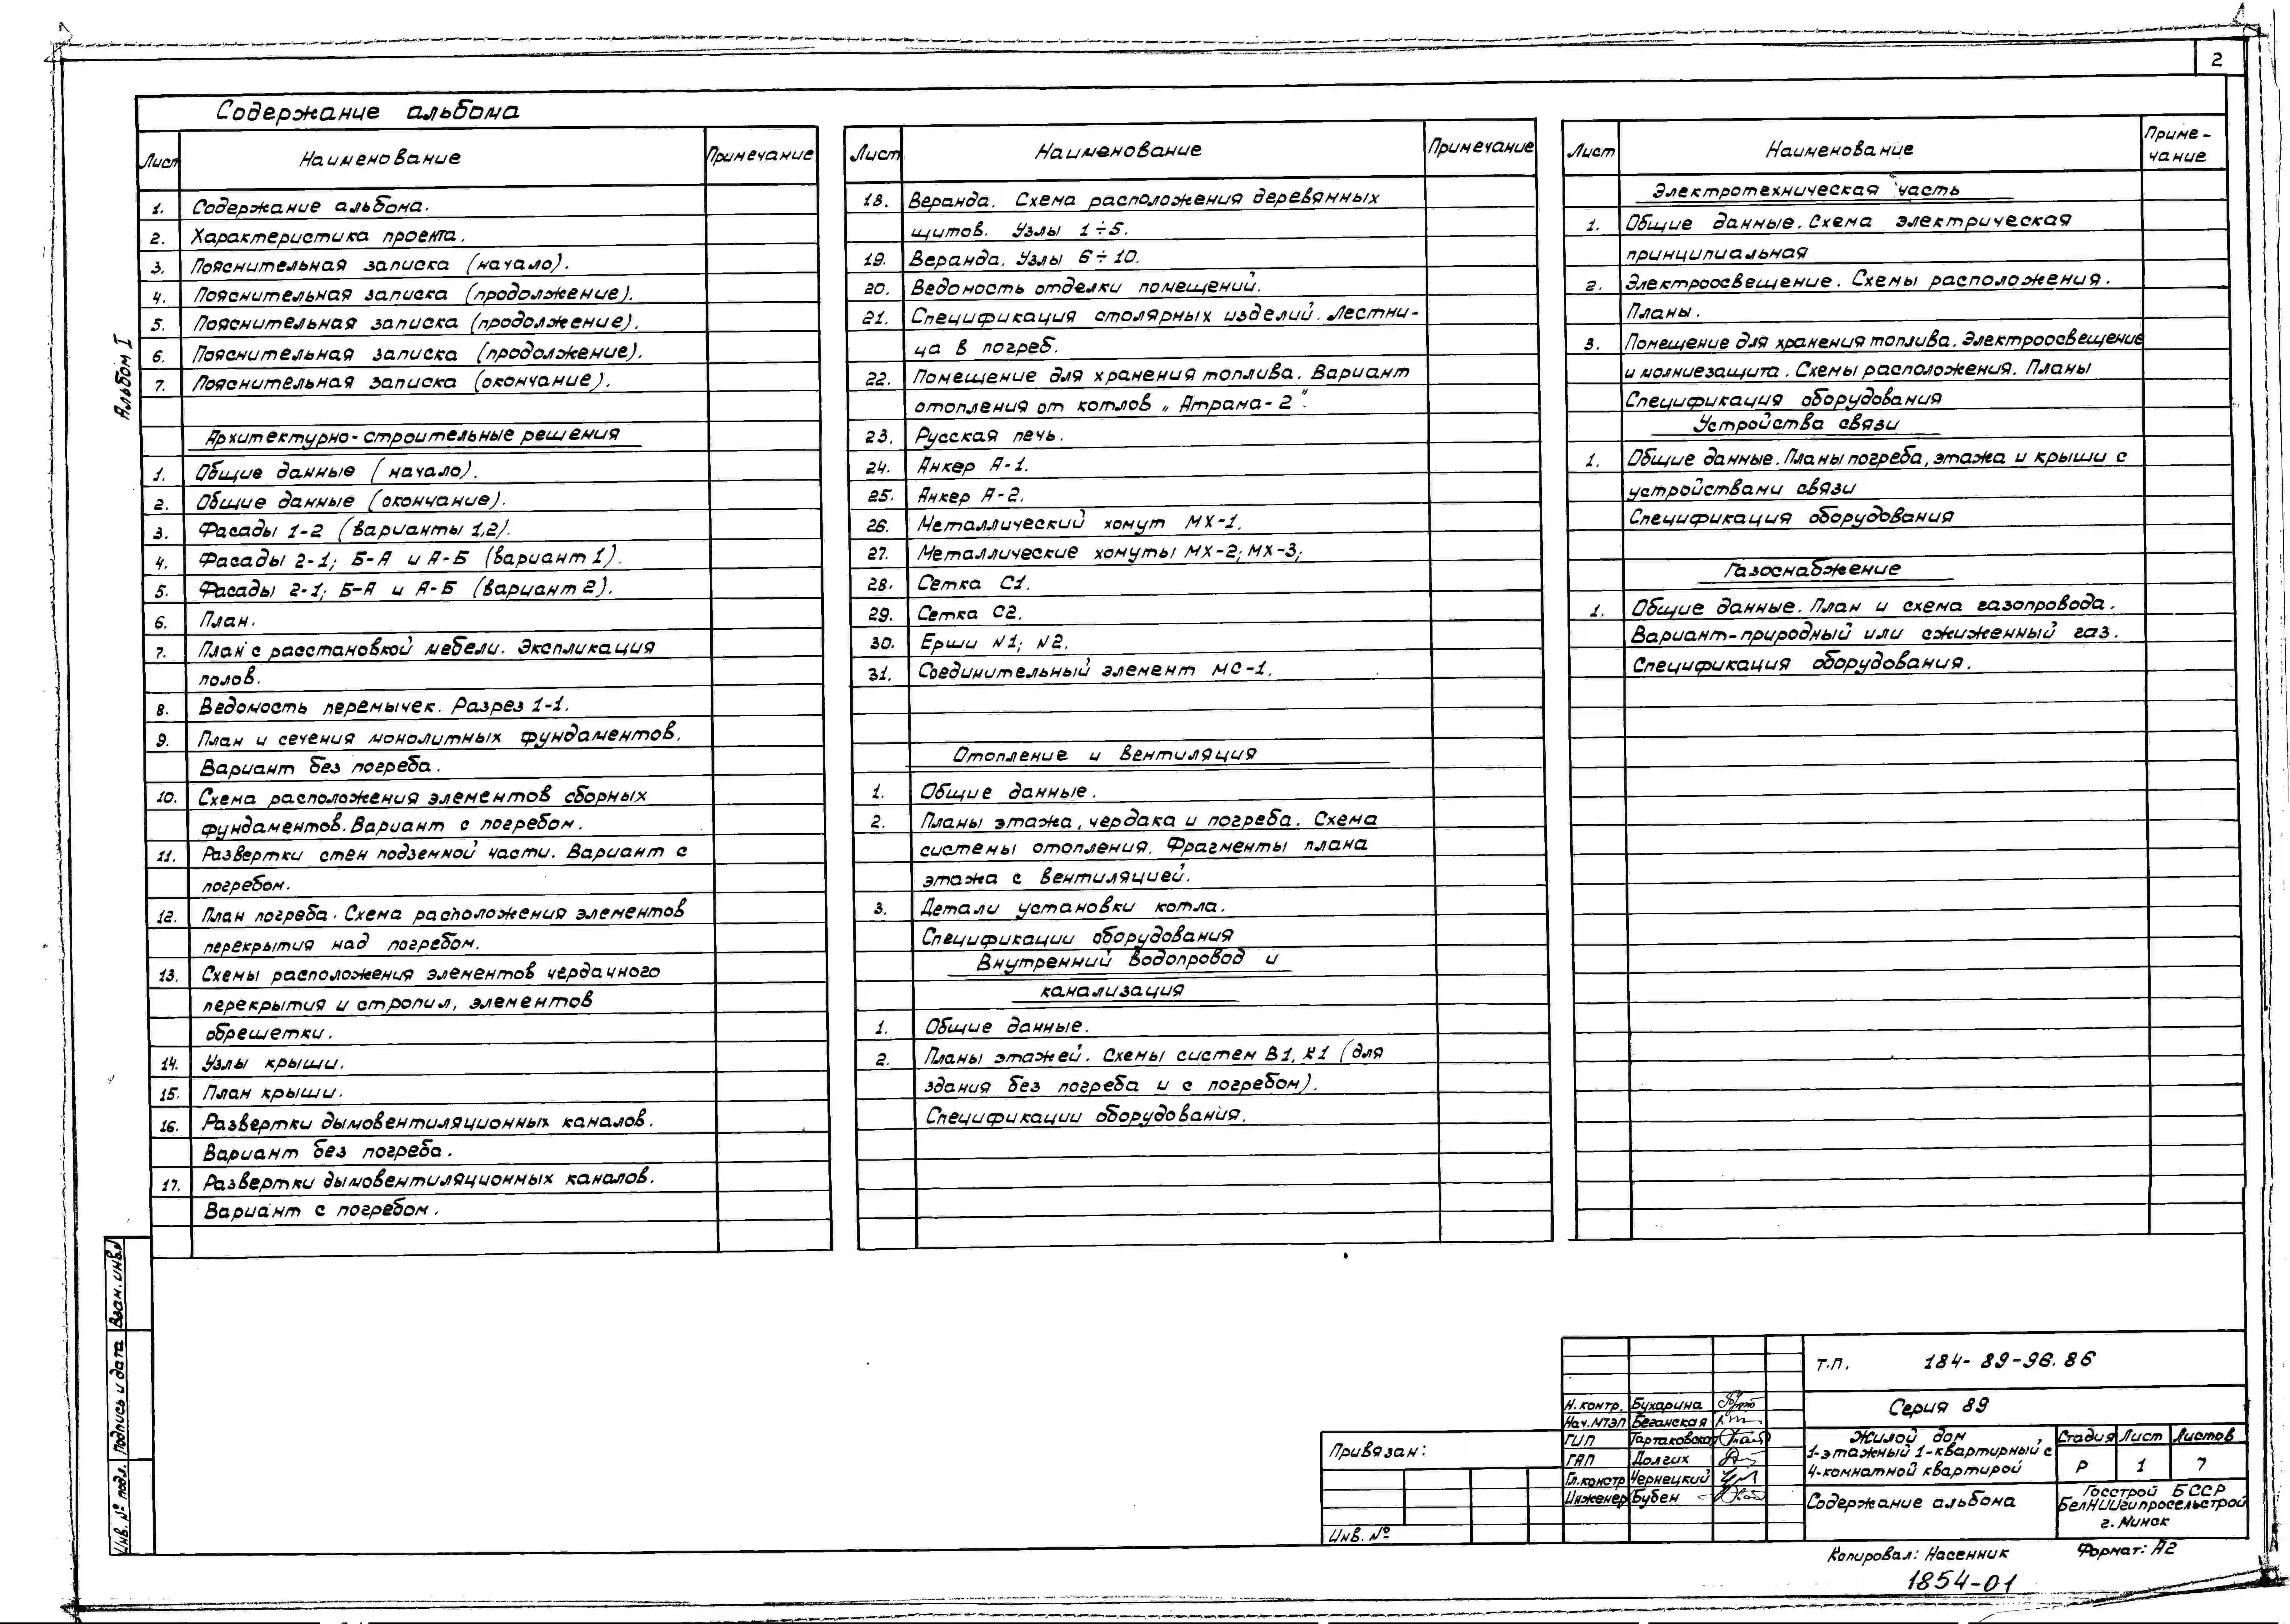 2
Содержание альбома
Лист Наименование Примечание
1. Содержание альбома.
2. Характеристика проекта.
3. Пояснительная записка (начало).
4. Пояснительная записка (продолжение).
5. Пояснительная записка (продолжение).
6. Пояснительная записка (продолжение).
7. Пояснительная записка (окончание).
Архитектурно-строительные решения
1. Общие данные (начало).
2. Общие данные (окончание).
3. Фасады 1-2 (варианты 1,2).
4. Фасады 2-1; Б-А и А-Б (вариант 1).
5. Фасады 2-1; Б-А и А-Б (вариант 2).
6. План.
7. План с расстановкой мебели. Экспликация
полов.
8. Ведомость перемычек. Разрез 1-1.
9. План и сечения монолитных фундаментов.
Вариант без погреба.
10. Схема расположения элементов сборных
фундаментов. Вариант с погребом.
11. Развертки стен подземной части. Вариант с
погребом.
12. План погреба. Схема расположения элементов
перекрытия над погребом.
13. Схемы расположения элементов чердачного
перекрытия и стропил, элементов
обрешетки.
14. Узлы крыши.
15. План крыши.
16. Развертки дымовентиляционных каналов.
Вариант без погреба.
17. Развертки дымовентиляционных каналов.
Вариант с погребом.
Лист Наименование Примечание
18. Веранда. Схема расположения деревянных
щитов. Узлы 1÷5.
19. Веранда. Узлы 6÷10.
20. Ведомость отделки помещений.
21. Спецификация столярных изделий. Лестни-
ца в погреб.
22. Помещение для хранения топлива. Вариант
отопления от котлов „Атрама-2".
23. Русская печь.
24. Анкер А-1.
25. Анкер А-2.
26. Металлический хомут МХ-1.
27. Металлические хомуты МХ-2; МХ-3;
28. Сетка С1.
29. Сетка С2.
30. Ерши N1; N2.
31. Соединительный элемент МС-1.
Отопление и вентиляция
1. Общие данные.
2. Планы этажа, чердака и погреба. Схема
системы отопления. Фрагменты плана
этажа с вентиляцией.
3. Детали установки котла.
Спецификации оборудования
Внутренний водопровод и
канализация
1. Общие данные.
2. Планы этажей. Схемы систем В1, К1 (для
здания без погреба и с погребом).
Спецификации оборудования.
Лист Наименование Приме-
чание
Электротехническая часть
1. Общие данные. Схема электрическая
принципиальная
2. Электроосвещение. Схемы расположения.
Планы.
3. Помещение для хранения топлива. Электроосвещение
и молниезащита. Схемы расположения. Планы
Спецификация оборудования
Устройства связи
1. Общие данные. Планы погреба, этажа и крыши с
устройствами связи
Спецификация оборудования
Газоснабжение
1. Общие данные. План и схема газопровода.
Вариант-природный или сжиженный газ.
Спецификация оборудования.
Альбом I
Взам. инв.№
Подпись и дата
Инв. № подл.
Привязан:
Инв. №
Н.контр. Бухарина
Нач.МТЭП Беганская
ГИП Тартаковская
ГАП Долгих
Гл.констр Чернецкий
Инженер Бубен
т.п. 184-89-96.86
Серия 89
Жилой дом
1-этажный 1-квартирный с
4-комнатной квартирой
Стадия Лист Листов
Р 1 7
Содержание альбома
Госстрой БССР
БелНИИгипросельстрой
г. Минск
Копировал: Насенник Формат: А2
1854-01